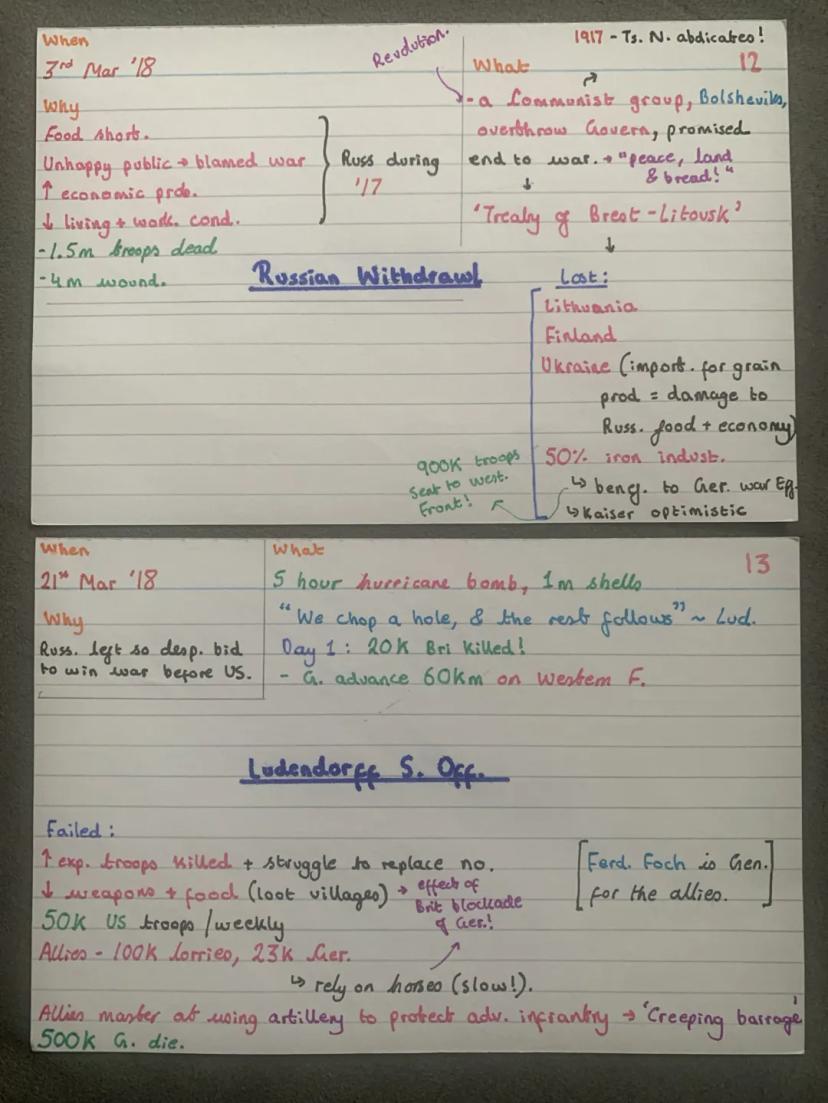 When
3rd Mar '18
Why
Food short.
Unhappy public → blamed war
↑ economic prob.
↓ living + work. cond.
-1.5m troops dead
-4m wound.
Russ during
'17
Revolution.
1917 - Ts. N. abdicates!
What
12
- a Communist group, Bolsheviks,
overthrow Govern, promised
end to war. → "peace, land
& bread!"
↓
'Treaty of Brest-Litovsk'
↓
Russian Withdrawl
Lost:
Lithuania
Finland
Ukraine (import. for grain
prod = damage to
Russ. food + economy)
50% iron indust.
↳ benef. to Ger. war Eff.
↳ Kaiser optimistic
900K troops
sent to west.
Front!
When
21st Mar '18
Why
Russ. left so desp. bid
to win war before US.
What
13
5 hour hurricane bomb, 1m shells
"We chop a hole, & the rest follows" ~ Lud.
Day 1: 20K Bri killed!
- G. advance 60km on Western F.
Ludendorff S. Off.
Failed:
↑ exp. troops killed + struggle to replace no.
↓ weapons + food (loot villages) → effect of
Brit blockade
of Ger.!
50K US troops/weekly
Allies - 100K lorries, 23K Ger.
↳ rely on horses (slow!).
[Ferd. Foch is Gen.
for the allies.]
Allies master at using artillery to protect adv. infrantry → 'Creeping barrage'
500K G. die.